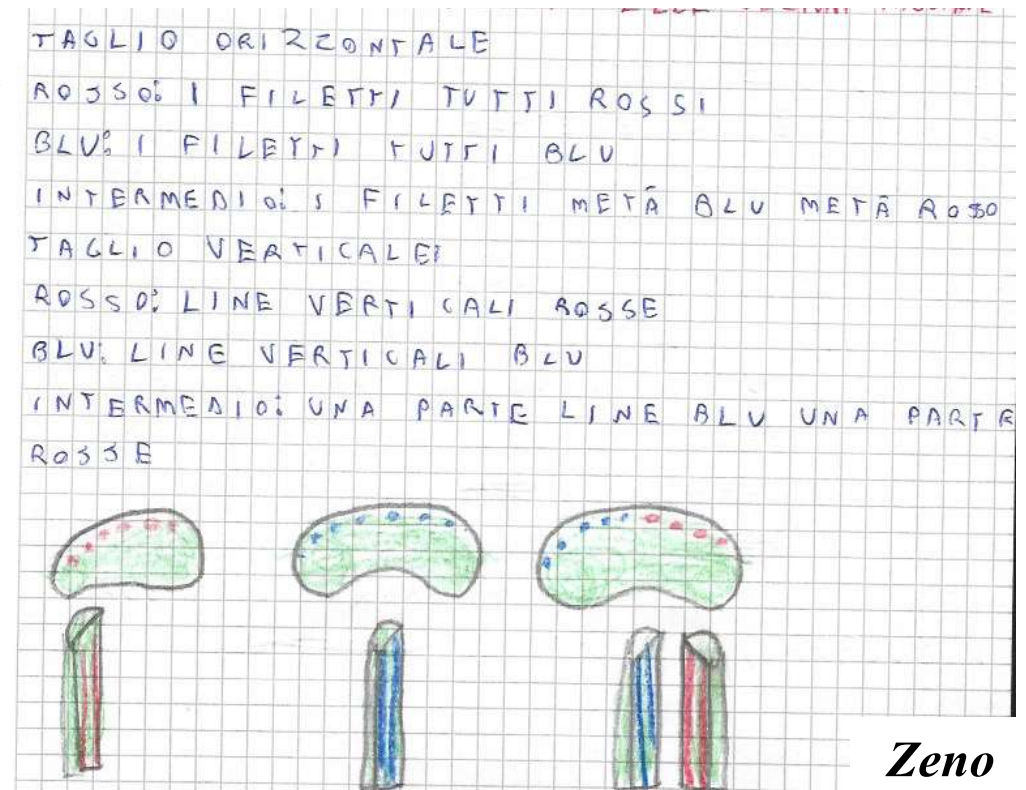 TAGLIO ORIZZONTALE
ROSSO: I FILETTI TUTTI ROSSI
BLU: I FILETTI TUTTI BLU
INTERMEDIO: I FILETTI METÀ BLU METÀ ROSO
TAGLIO VERTICALE:
ROSSO: LINE VERTICALI ROSSE
BLU: LINE VERTICALI BLU
INTERMEDIO: UNA PARTE LINE BLU UNA PARTE
ROSSE
Zeno